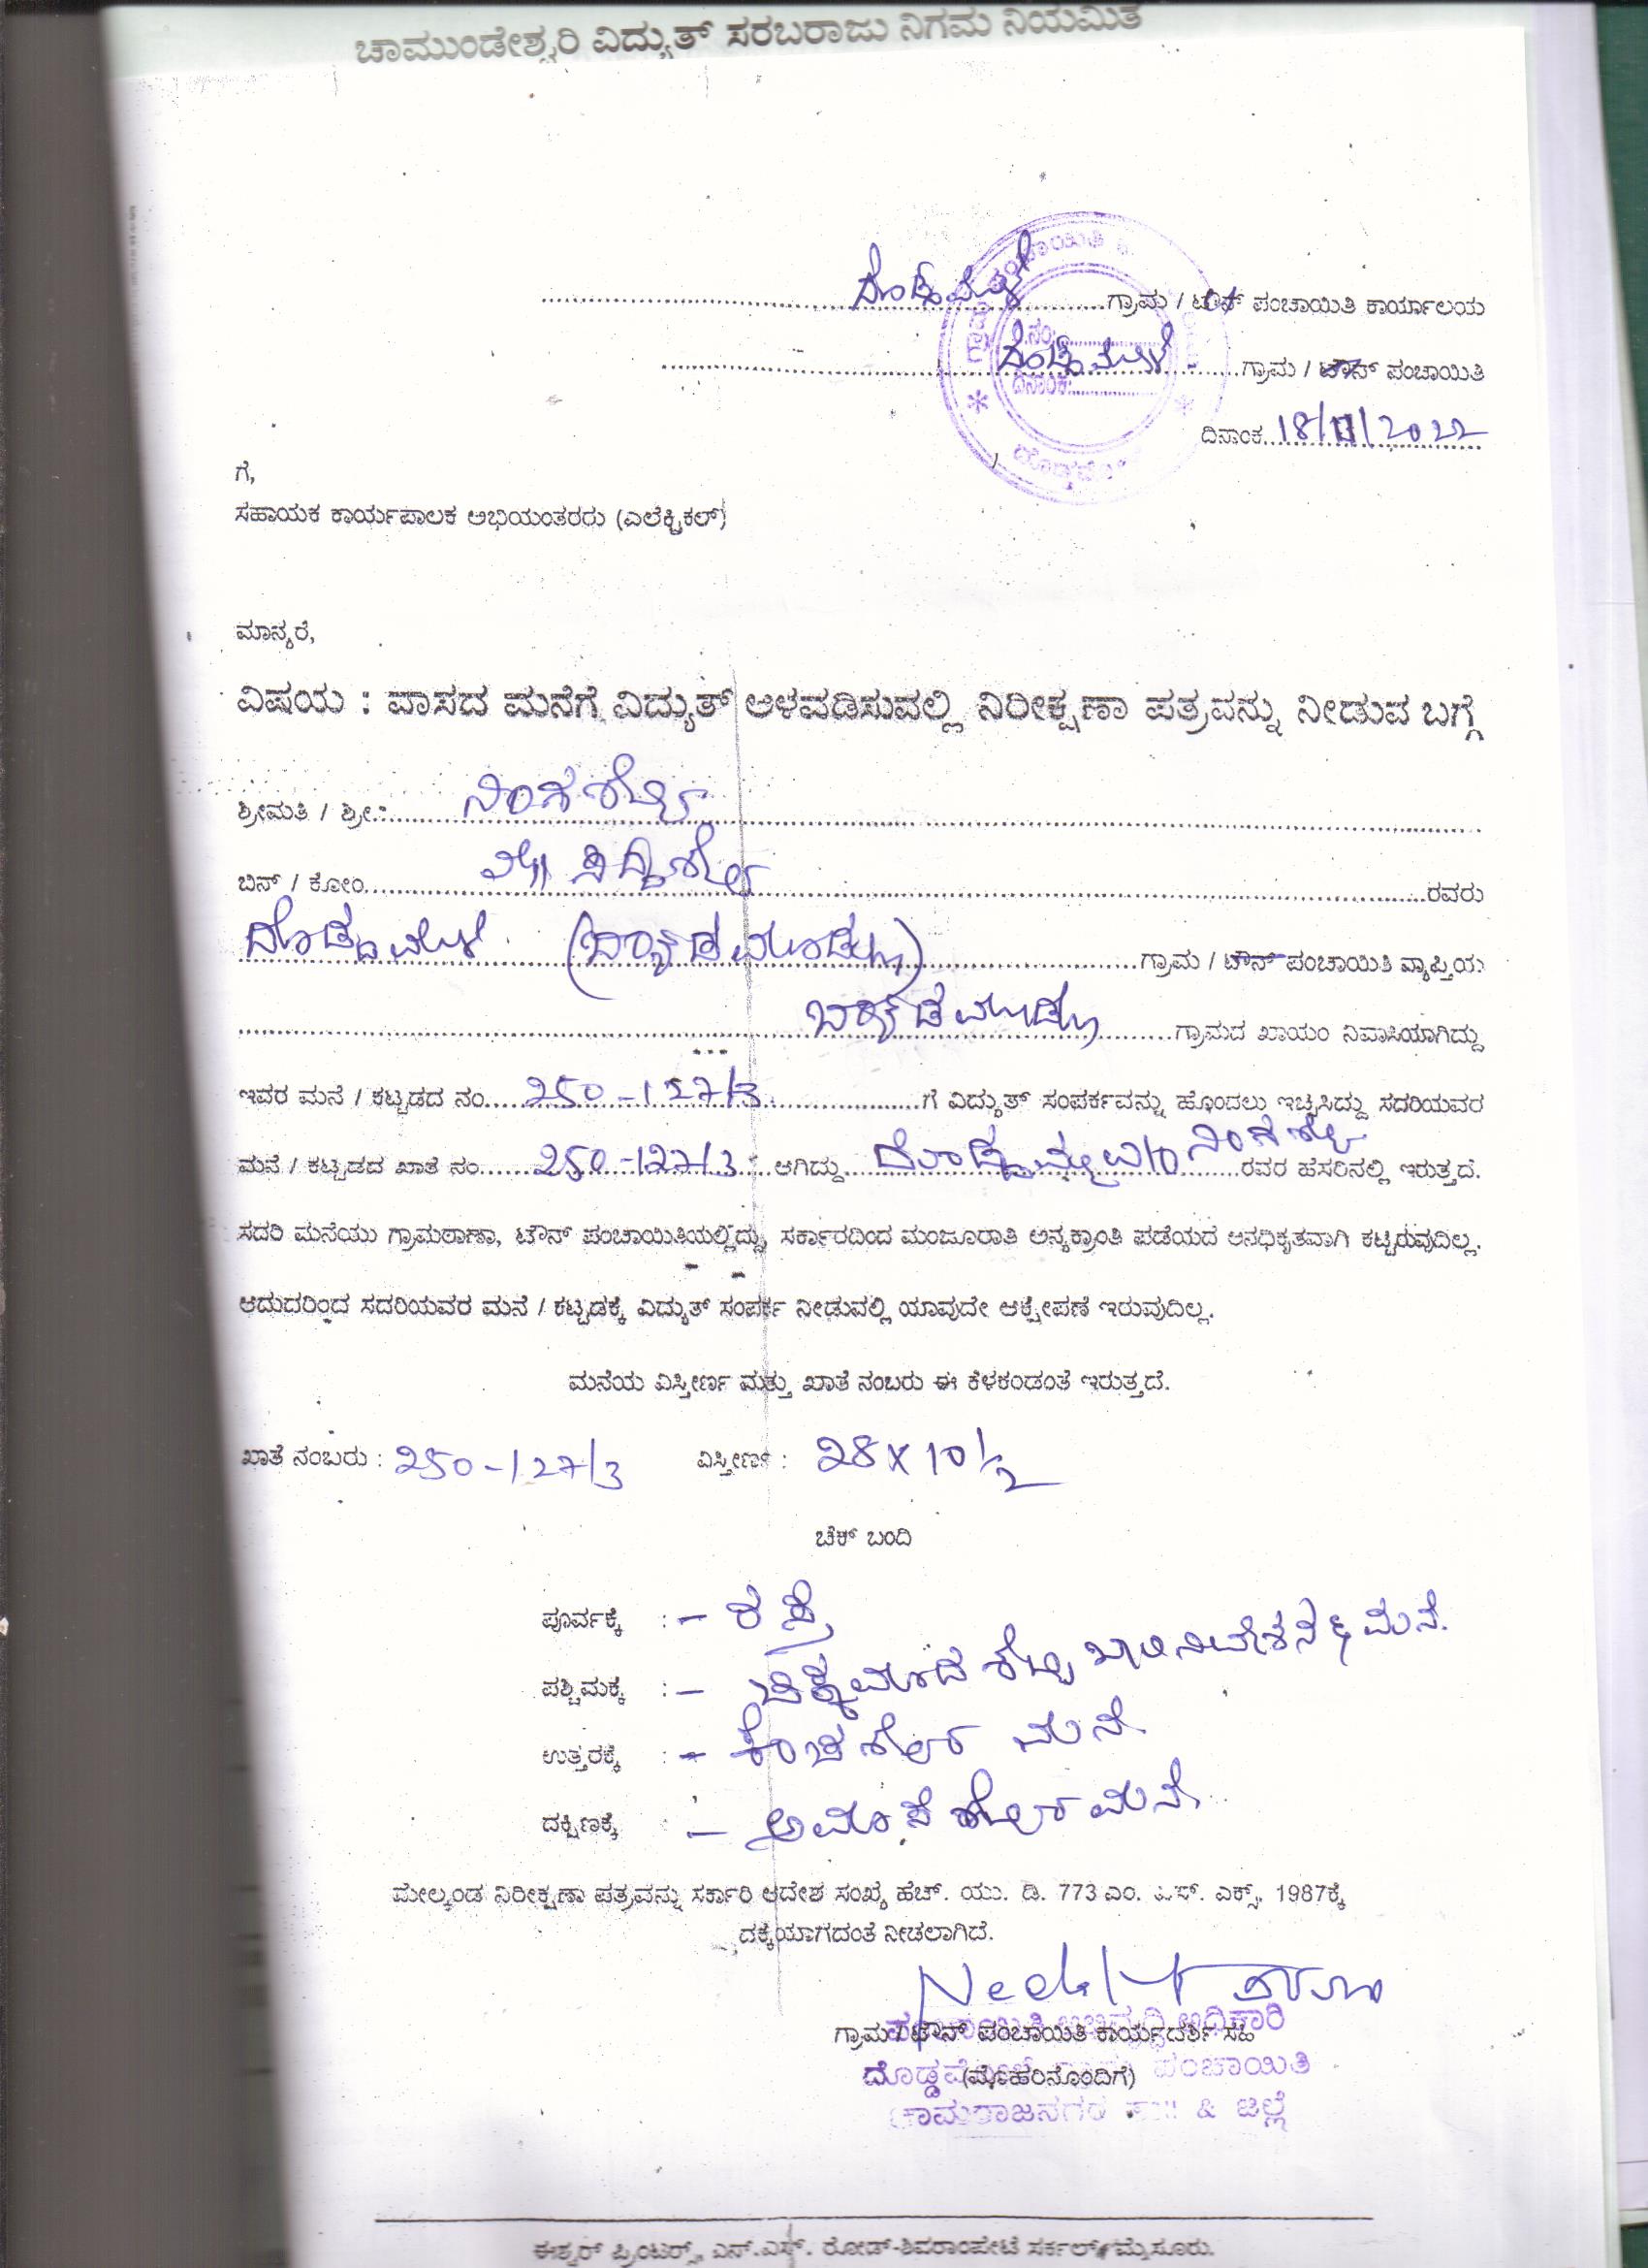 ಚಾಮುಂಡೇಶ್ವರಿ ವಿದ್ಯುತ್ ಸರಬರಾಜು ನಿಗಮ ನಿಯಮಿತ
ಗ್ರಾಮ / ಟೌನ್ ಪಂಚಾಯಿತಿ ಕಾರ್ಯಾಲಯ
ಗ್ರಾಮ / ಟೌನ್ ಪಂಚಾಯಿತಿ
ದಿನಾಂಕ 18/11/2022
ಗೆ,
ಸಹಾಯಕ ಕಾರ್ಯಪಾಲಕ ಅಭಿಯಂತರರು (ಎಲೆಕ್ಟ್ರಿಕಲ್)
ಮಾನ್ಯರೆ,
ವಿಷಯ : ವಾಸದ ಮನೆಗೆ ವಿದ್ಯುತ್ ಅಳವಡಿಸುವಲ್ಲಿ ನಿರೀಕ್ಷಣಾ ಪತ್ರವನ್ನು ನೀಡುವ ಬಗ್ಗೆ
ಶ್ರೀಮತಿ / ಶ್ರೀ: ನಿಂಗಶೆಟ್ಟಿ
ಬಿನ್ / ಕೋಂ ಸಿದ್ದಶೆಟ್ಟಿ ರವರು
ಗ್ರಾಮ / ಟೌನ್ ಪಂಚಾಯಿತಿ ವ್ಯಾಪ್ತಿಯ
ಗ್ರಾಮದ ಖಾಯಂ ನಿವಾಸಿಯಾಗಿದ್ದು
ಇವರ ಮನೆ / ಕಟ್ಟಡದ ನಂ 250-127/3 ಗೆ ವಿದ್ಯುತ್ ಸಂಪರ್ಕವನ್ನು ಹೊಂದಲು ಇಚ್ಚಿಸಿದ್ದು ಸದರಿಯವರ
ಮನೆ / ಕಟ್ಟಡದ ಖಾತೆ ನಂ 250-127/3 ಆಗಿದ್ದು ದೊಡ್ಡಮ್ಮ w/o ನಿಂಗಶೆಟ್ಟಿ ರವರ ಹೆಸರಿನಲ್ಲಿ ಇರುತ್ತದೆ.
ಸದರಿ ಮನೆಯು ಗ್ರಾಮಠಾಣಾ, ಟೌನ್ ಪಂಚಾಯಿತಿಯಲ್ಲಿದ್ದು, ಸರ್ಕಾರದಿಂದ ಮಂಜೂರಾತಿ ಅನ್ಯಕ್ರಾಂತಿ ಪಡೆಯದ ಅನಧಿಕೃತವಾಗಿ ಕಟ್ಟಿರುವುದಿಲ್ಲ.
ಆದುದರಿಂದ ಸದರಿಯವರ ಮನೆ / ಕಟ್ಟಡಕ್ಕೆ ವಿದ್ಯುತ್ ಸಂಪರ್ಕ ನೀಡುವಲ್ಲಿ ಯಾವುದೇ ಆಕ್ಷೇಪಣೆ ಇರುವುದಿಲ್ಲ.
ಮನೆಯ ವಿಸ್ತೀರ್ಣ ಮತ್ತು ಖಾತೆ ನಂಬರು ಈ ಕೆಳಕಂಡಂತೆ ಇರುತ್ತದೆ.
ಖಾತೆ ನಂಬರು : 250-127/3 ವಿಸ್ತೀರ್ಣ : 28 x 10 1/2
ಚೆಕ್ ಬಂದಿ
ಪೂರ್ವಕ್ಕೆ : - ರಸ್ತೆ
ಪಶ್ಚಿಮಕ್ಕೆ : - ಚಿಕ್ಕಮಾದ ಶೆಟ್ಟಿ ಖಾಲಿ ನಿವೇಶನ & ಮನೆ.
ಉತ್ತರಕ್ಕೆ : - ಕೆಂಚಶೆಟ್ಟಿ ಮನೆ
ದಕ್ಷಿಣಕ್ಕೆ : - ಅಮಾಸೆ ಶೆಟ್ಟಿ ಮನೆ
ಮೇಲ್ಕಂಡ ನಿರೀಕ್ಷಣಾ ಪತ್ರವನ್ನು ಸರ್ಕಾರಿ ಆದೇಶ ಸಂಖ್ಯೆ ಹೆಚ್. ಯು. ಡಿ. 773 ಎಂ. ಎಸ್. ಎಕ್ಸ್. 1987ಕ್ಕೆ
ದಕ್ಕೆಯಾಗದಂತೆ ನೀಡಲಾಗಿದೆ.
ಪಂಚಾಯಿತಿ ಅಭಿವೃದ್ಧಿ ಅಧಿಕಾರಿ
ಗ್ರಾಮ / ಟೌನ್ ಪಂಚಾಯಿತಿ ಕಾರ್ಯದರ್ಶಿ ಸಹಿ
(ಮೊಹರಿನೊಂದಿಗೆ)
ಪಂಚಾಯಿತಿ
ಚಾಮರಾಜನಗರ ತಾ|| & ಜಿಲ್ಲೆ
ಈಶ್ವರ್ ಪ್ರಿಂಟರ್ಸ್, ಎನ್.ಎಸ್. ರೋಡ್-ಶಿವರಾಂಪೇಟೆ ಸರ್ಕಲ್, ಮೈಸೂರು.